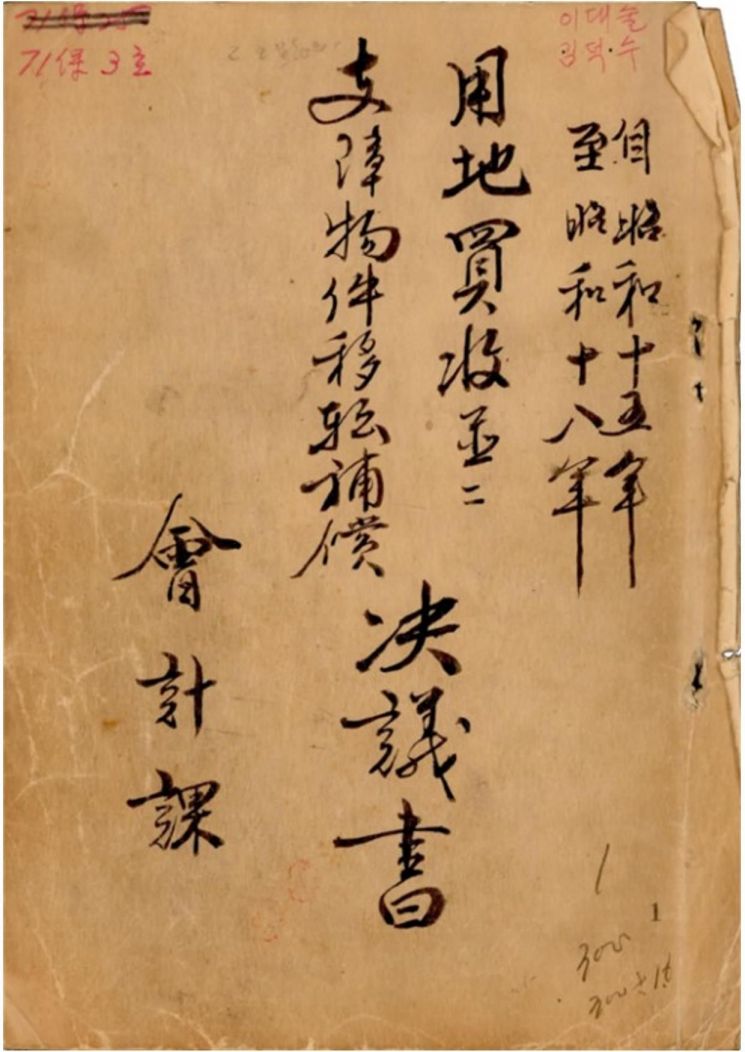 71保 3호
이대술
김덕수
自昭和十五年
至昭和十八年
用地買收並ニ
支障物件移転補償
决議書
會計課
1
1
300